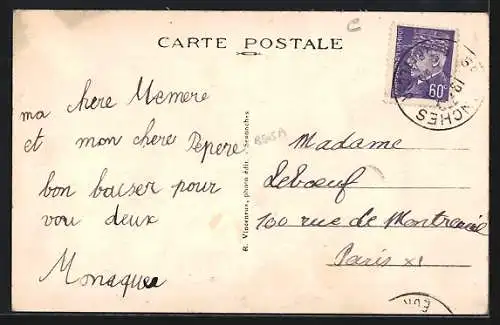 CARTE POSTALE
C
60c
NCHES
ma chere Memere
et mon chere Pepere
bon baiser pour
vou deux
Monique
R. Vincentrux, photo édit. Sezanches
Madame
Leboeuf
100 rue de Montreuil
Paris XI